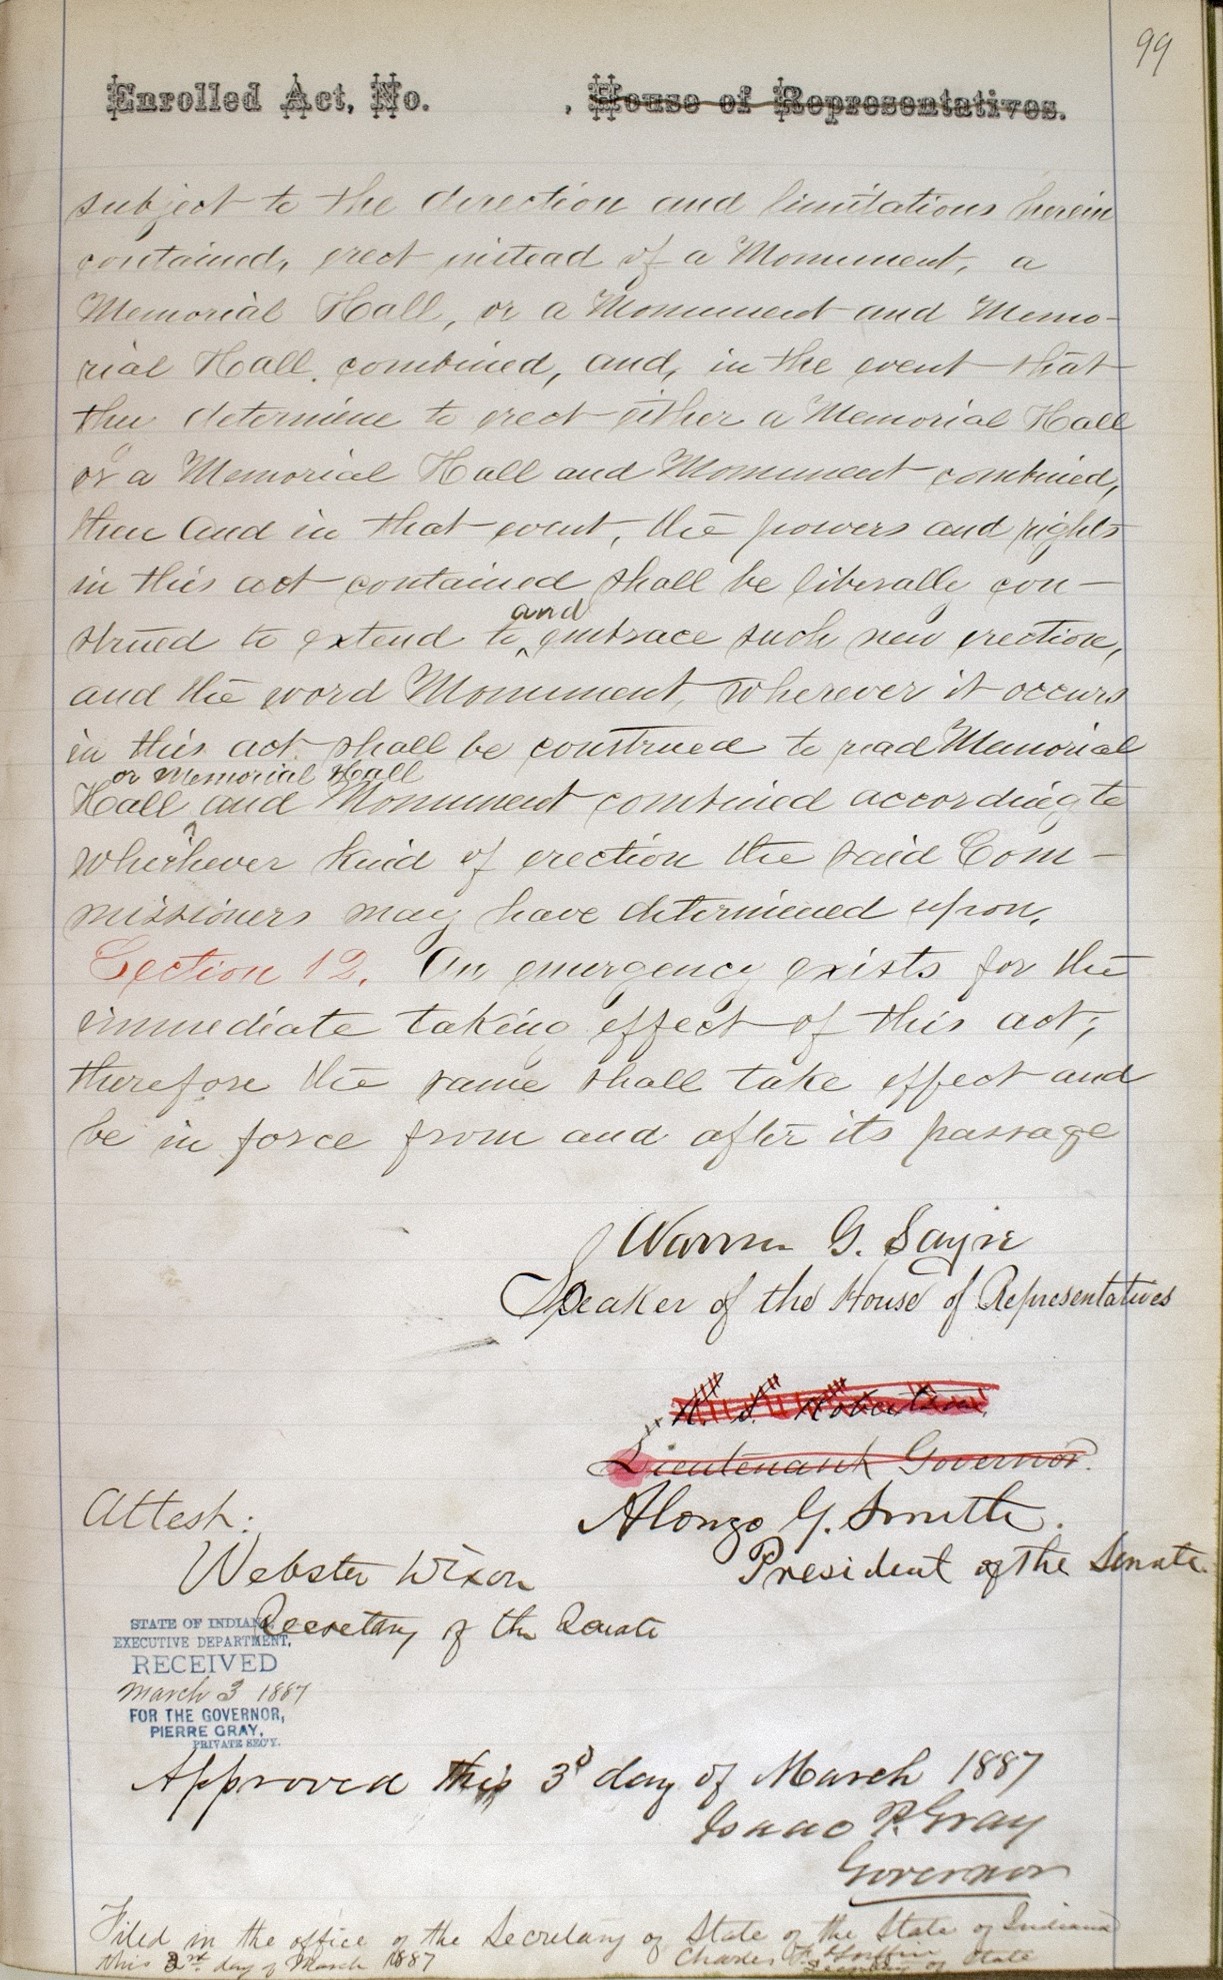 99
Enrolled Act, No. , House of Representatives.
subject to the direction and limitations herein
contained, erect instead of a Monument, a
Memorial Hall, or a Monument and Memo-
rial Hall. combined, and, in the event that
they determine to erect either a Memorial Hall
or a Memorial Hall and Monument combined,
then and in that event, the powers and rights
in this act contained shall be liberally con-
and
strued to extend to embrace such new erection,
and the word Monument, wherever it occurs
in this act shall be construed to read Memorial
or Memorial Hall
Hall and Monument combined according to
whichever kind of erection the said Com-
missioners may have determined upon.
Section 12. An emergency exists for the
immediate taking effect of this act;
therefore the same shall take effect and
be in force from and after its passage
Warren G. Sayre
Speaker of the House of Representatives
R. S. Robertson,
Lieutenant Governor.
Attest:
Alonzo G. Smith.
President of the Senate.
Webster Dixon
Secretary of the Senate
STATE OF INDIANA
EXECUTIVE DEPARTMENT,
RECEIVED
March 3 1887
FOR THE GOVERNOR,
PIERRE GRAY,
PRIVATE SEC'Y.
Approved this 3d day of March 1887
Isaac P. Gray
Governor
Filed in the office of the Secretary of State of the State of Indiana
this day of March 1887 Charles F. Griffin
Secretary of State